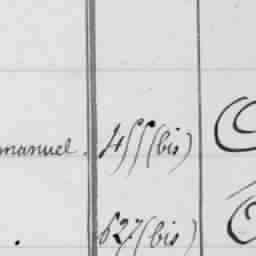 manuel. 455 (bis)
. 627 (bis)